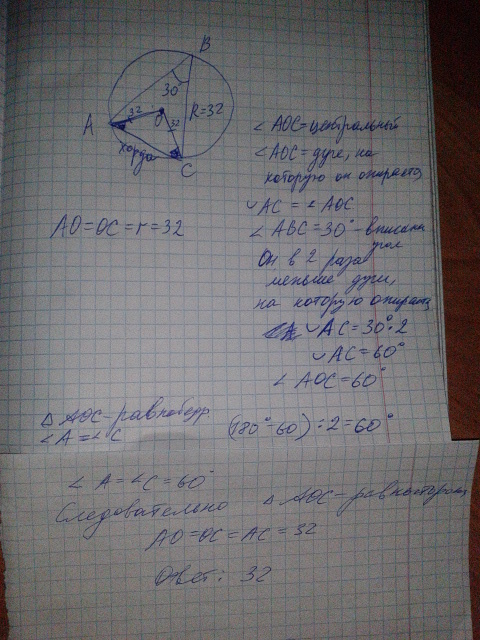 B
30°
R=32
A
32
O
32
хорда
C
∠AOC=центральный
∠AOC = дуге, на
которую он опирается
◡AC = ∠AOC
AO=OC=r=32
∠ABC=30° - вписанный
угол
Он в 2 раза
меньше дуги,
на которую опирается
◡AC=30°·2
◡AC=60°
∠AOC=60°
△AOC-равнобедр
∠A=∠C
(180°-60):2=60°
∠A=∠C=60°
Следовательно △AOC-равносторонн
AO=OC=AC=32
Ответ: 32